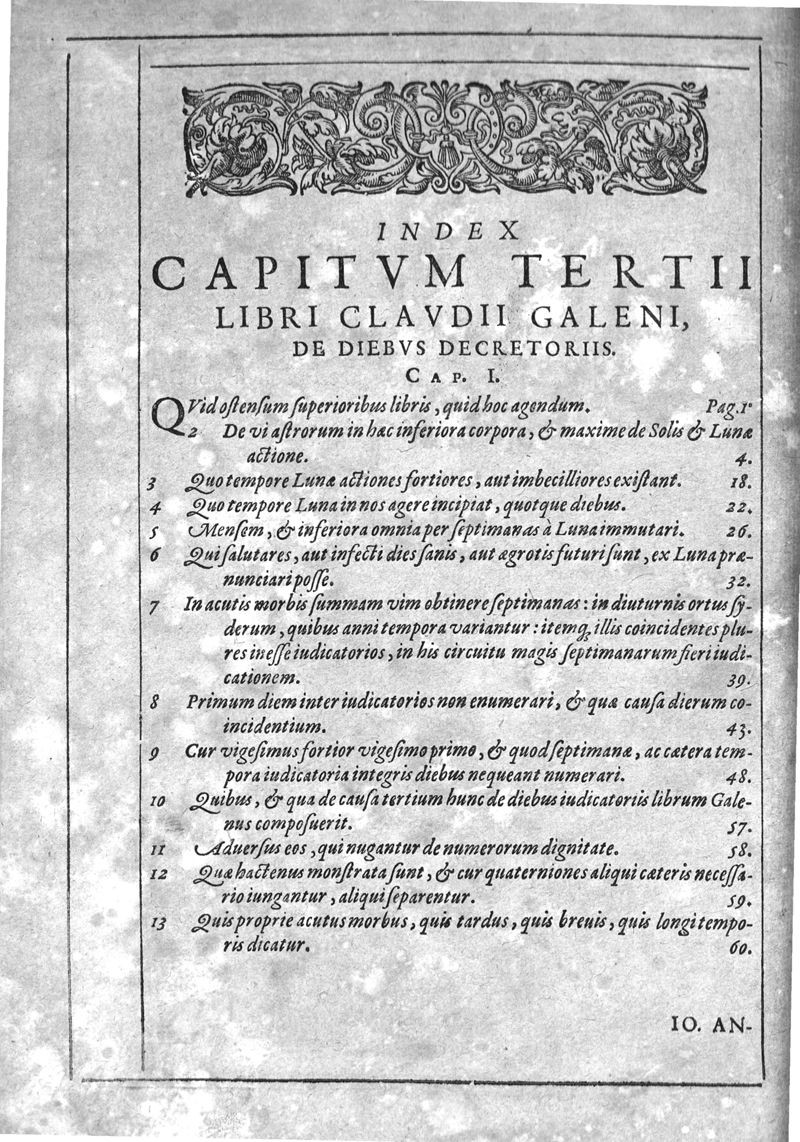 INDEX
CAPITVM TERTII
LIBRI CLAVDII GALENI,
DE DIEBVS DECRETORIIS.
CAP. I.
QVid ostensum superioribus libris, quid hoc agendum. Pag.1.
2 De vi astrorum in hæc inferiora corpora, & maxime de Solis & Lunæ
actione. 4.
3 Quo tempore Lunæ actiones fortiores, aut imbecilliores existant. 18.
4 Quo tempore Luna in nos agere incipiat, quotque diebus. 22.
5 Mensem, & inferiora omnia per septimanas à Luna immutari. 26.
6 Qui salutares, aut infecti dies sanis, aut ægrotis futuri sunt, ex Luna præ-
nunciari posse. 32.
7 In acutis morbis summam vim obtinere septimanas: in diuturnis ortus sy-
derum, quibus anni tempora variantur: itemq; illis coincidentes plu-
res inesse iudicatorios, in his circuitu magis septimanarum fieri iudi-
cationem. 39.
8 Primum diem inter iudicatorios non enumerari, & quæ causa dierum co-
incidentium. 43.
9 Cur vigesimus fortior vigesimo primo, & quod septimanæ, ac cætera tem-
pora iudicatoria integris diebus nequeant numerari. 48.
10 Quibus, & qua de causa tertium hunc de diebus iudicatoriis librum Gale-
nus composuerit. 57.
11 Aduersus eos, qui nugantur de numerorum dignitate. 58.
12 Quæ hactenus monstrata sunt, & cur quaterniones aliqui cæteris necessa-
rio iungantur, aliqui separentur. 59.
13 Quis proprie acutus morbus, quis tardus, quis breuis, quis longi tempo-
ris dicatur. 60.
IO. AN-